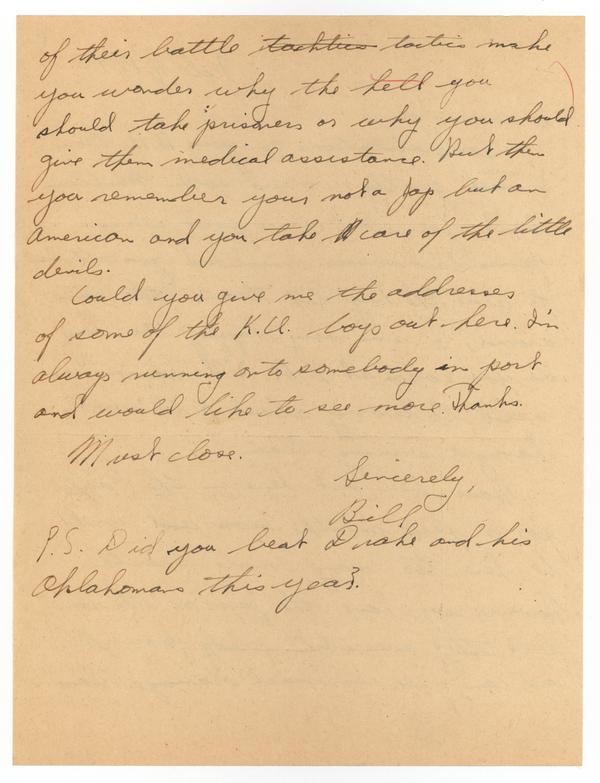 of their battle tachtics tactics make
you wonder why the hell you
should take prisoners or why you should
give them medical assistance. But then
you remember your not a Jap but an
American and you take care of the little
devils.
Could you give me the addresses
of some of the K.U. boys out here. I'm
always running onto somebody in port
and would like to see more. Thanks.
Must close.
Sincerely,
Bill
P.S. Did you beat Drake and his
Oklahomans this year?.